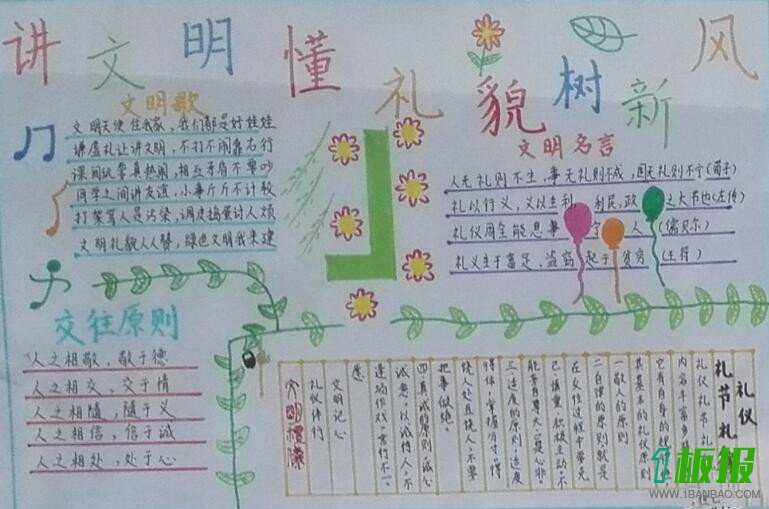 讲文明懂礼貌树新风
文明歌
文明天使住我家，我们都是好娃娃
谦虚礼让讲文明，不打不闹靠右行
课间玩耍真热闹，相互矛盾不要吵
同学之间讲友谊，小事斤斤不计较
打架骂人是污染，调皮捣蛋讨人烦
文明礼貌人人赞，绿色文明我来建
文明名言
人无礼则不生，事无礼则不成，国无礼则不宁(荀子)
礼以行义，义以生利，利民，政之大节也(左传)
礼仪周全能息事宁人(儒贝尔)
礼义生于富足，盗窃起于贫穷(王符)
交往原则
人之相敬，敬于德
人之相交，交于情
人之相随，随于义
人之相信，信于诚
人之相处，处于心
礼仪
礼节礼
礼仪礼节礼
内容丰富多样
它有自身的规
其基本的礼仪原则
一敬人的原则
二自律的原则就是
在交往过程中要克
己慎重积极主动不
能妄自尊大口是心非。
三适度的原则，适度
得体，掌握分寸。得
饶人处且饶人，不要
把事做绝。
四真诚的原则诚心
诚意，以诚待人，不
逢场作戏，言行不一。
愿
文明记心
礼仪伴行
文明礼仪
1板报
WWW.1BANBAO.COM